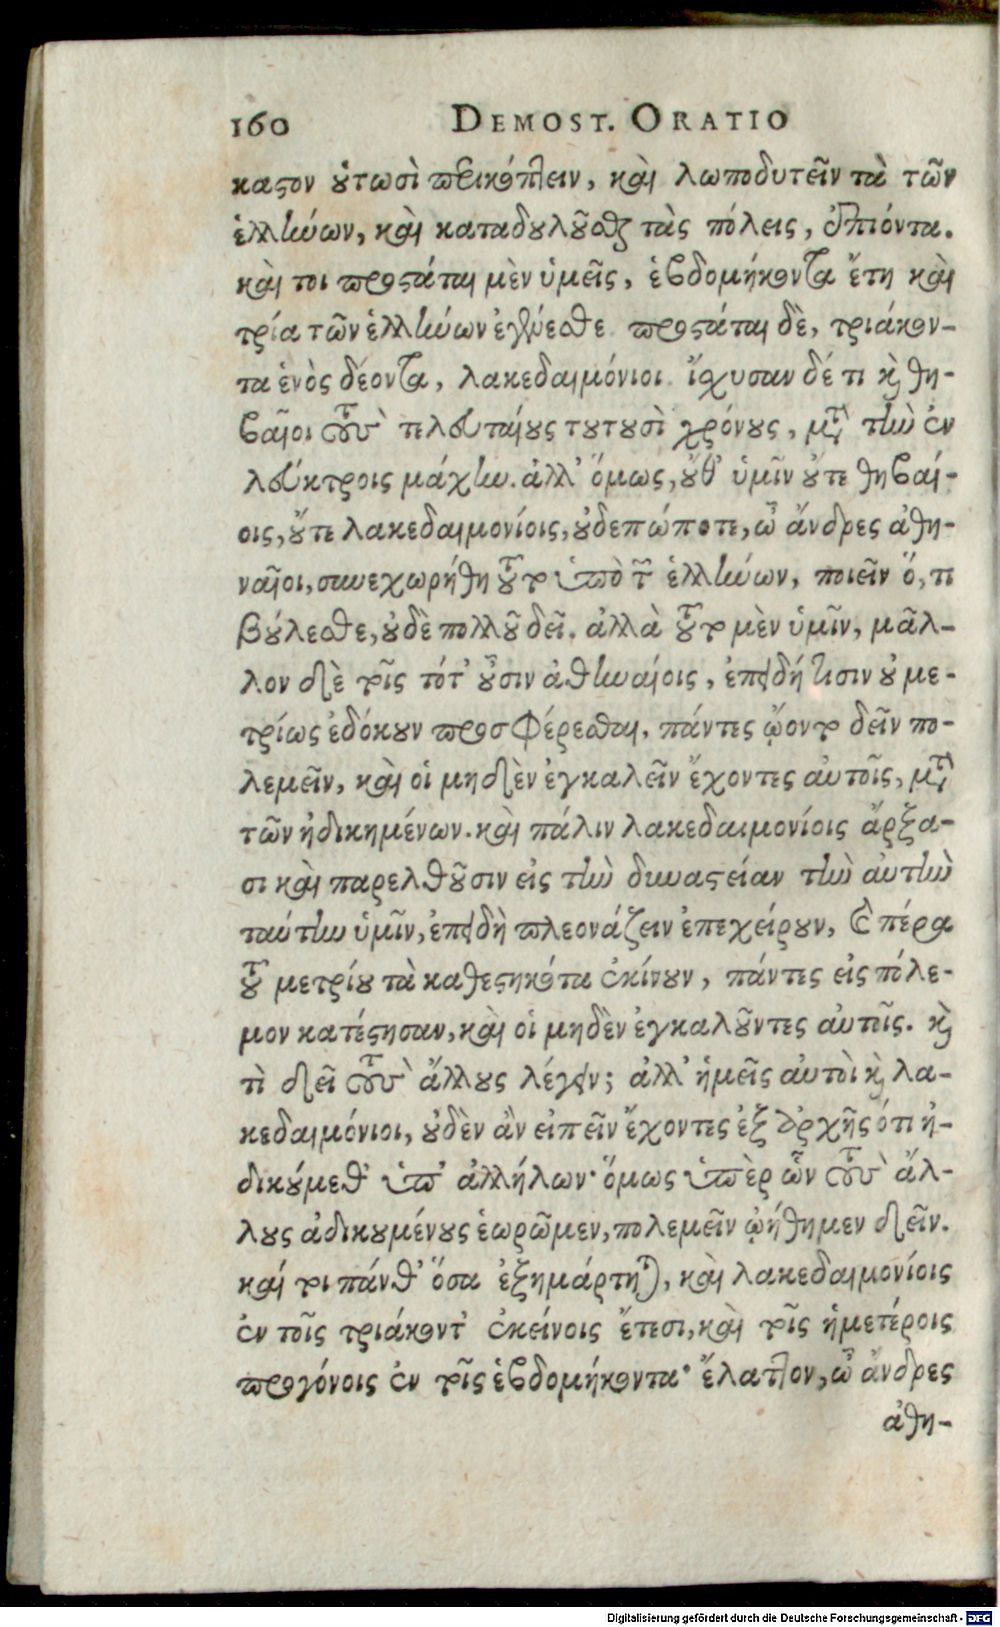 160 DEMOST. ORATIO
καστον οὑτωσὶ περικόπτειν, καὶ λωποδυτεῖν τὰ τῶν
ἑλλήνων, καὶ καταδουλοῦσθαι τὰς πόλεις, ἐπιόντα.
καὶ τοι προστάται μὲν ὑμεῖς, ἑβδομήκοντα ἔτη καὶ
τρία τῶν ἑλλήνων ἐγένεσθε προστάται δὲ, τριάκον-
τα ἑνὸς δέοντα, λακεδαιμόνιοι ἴσχυσαν δέ τι καὶ θη-
βαῖοι τοὺς τελευταίους τουτουσὶ χρόνους, μετὰ τὴν ἐν
λεύκτροις μάχην. ἀλλ' ὅμως, οὔθ' ὑμῖν οὔτε θηβαί-
οις, οὔτε λακεδαιμονίοις, οὐδεπώποτε, ὦ ἄνδρες ἀθη-
ναῖοι, συνεχωρήθη τοῦτο ὑπὸ τῶν ἑλλήνων, ποιεῖν ὅ, τι
βούλεσθε, οὐδὲ πολλοῦ δεῖ. ἀλλὰ τοῦτο μὲν ὑμῖν, μᾶλ-
λον δὲ τοῖς τότ' οὖσιν ἀθηναίοις, ἐπειδή τισιν οὐ με-
τρίως ἐδόκουν προσφέρεσθαι, πάντες ᾤοντο δεῖν πο-
λεμεῖν, καὶ οἱ μηδὲν ἐγκαλεῖν ἔχοντες αὐτοῖς, μετὰ
τῶν ἠδικημένων. καὶ πάλιν λακεδαιμονίοις ἄρξα-
σι καὶ παρελθοῦσιν εἰς τὴν δυναστείαν τὴν αὐτὴν
ταύτην ὑμῖν, ἐπειδὴ πλεονάζειν ἐπεχείρουν, καὶ πέρα
τοῦ μετρίου τὰ καθεστηκότα ἐκίνουν, πάντες εἰς πόλε-
μον κατέστησαν, καὶ οἱ μηδὲν ἐγκαλοῦντες αὐτοῖς. καὶ
τὶ δεῖ τοὺς ἄλλους λέγειν; ἀλλ' ἡμεῖς αὐτοὶ καὶ λα-
κεδαιμόνιοι, οὐδὲν ἂν εἰπεῖν ἔχοντες ἐξ ἀρχῆς ὅτι ἠ-
δικούμεθ' ὑπ' ἀλλήλων· ὅμως ὑπὲρ ὧν τοὺς ἄλ-
λους ἀδικουμένους ἑωρῶμεν, πολεμεῖν ᾠήθημεν δεῖν.
καί τοι πάνθ' ὅσα ἐξημάρτηται, καὶ λακεδαιμονίοις
ἐν τοῖς τριάκοντ' ἐκείνοις ἔτεσι, καὶ τοῖς ἡμετέροις
προγόνοις ἐν τοῖς ἑβδομήκοντα· ἔλαττον, ὦ ἄνδρες
ἀθη-
Digitalisierung gefördert durch die Deutsche Forschungsgemeinschaft - DFG